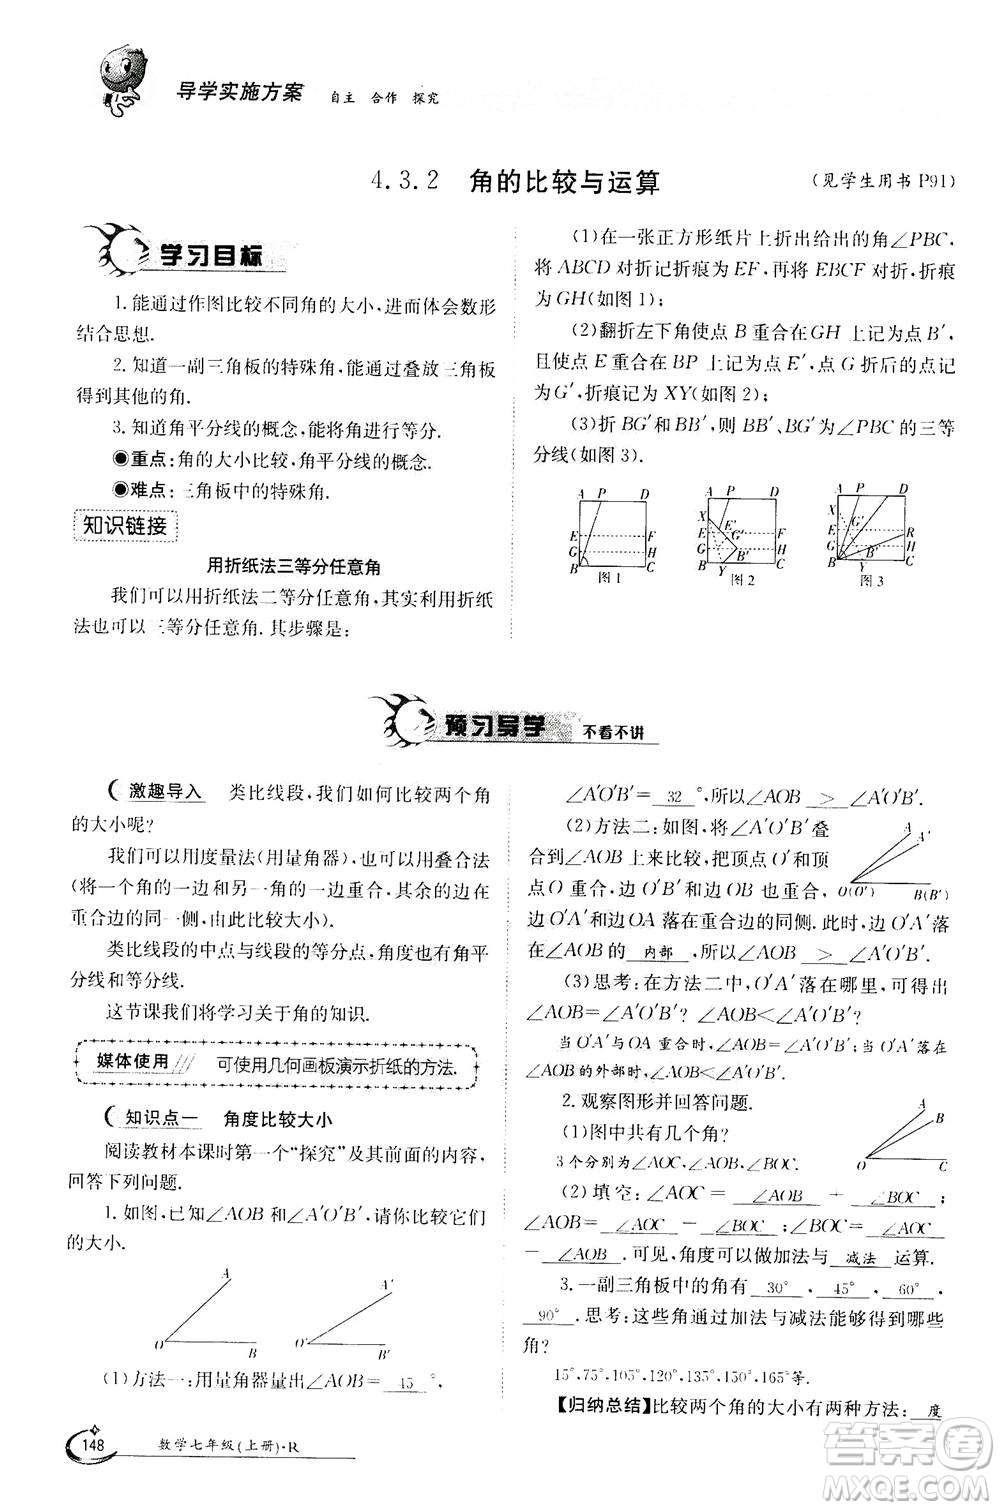 导学实施方案 自主 合作 探究
4.3.2 角的比较与运算 (见学生用书 P91)
学习目标
1.能通过作图比较不同角的大小,进而体会数形
结合思想.
2.知道一副三角板的特殊角,能通过叠放三角板
得到其他的角.
3.知道角平分线的概念,能将角等分.
◉重点:角的大小比较,角平分线的概念.
◉难点:三角板中的特殊角.
知识链接
用折纸法三等分任意角
我们可以用折纸法二等分任意角.其实利用折纸
法也可以三等分任意角.其步骤是:
(1)在一张正方形纸片上折出给出的角∠PBC,
将 ABCD 对折记折痕为 EF,再将 EBCF 对折,折痕
为 GH(如图 1);
(2)翻折左下角使点 B 重合在 GH 上记为点 B′,
且使点 E 重合在 BP 上记为点 E′,点 G 折后的点记
为 G′,折痕记为 XY(如图 2);
(3)折 BG′和 BB′,则 BB′、BG′为∠PBC 的三等
分线(如图 3).
A P D
E F
G H
B C
图 1
A P D
X
E E′ G′ F
G B′ H
B Y C
图 2
A P D
X
E G′ R
G B′ H
B Y C
图 3
预习导学 不看不讲
激趣导入 类比线段,我们如何比较两个角
的大小呢?
我们可以用度量法(用量角器),也可以用叠合法
(将一个角的一边和另一角的一边重合,另一边在
重合边的同一侧,由此比较大小).
类比线段的中点与线段的等分点,角度也有角平
分线和等分线.
这节课我们将学习关于角的知识.
媒体使用 可使用几何画板演示折纸的方法.
知识点一 角度比较大小
阅读教材本课时第一个“探究”及其前面的内容,
回答下列问题.
1.如图,已知∠AOB 和∠A′O′B′,请你比较它们
的大小.
A
O B
A′
O′ B′
(1)方法一:用量角器量出∠AOB= 45 °,
∠A′O′B′= 32 °,所以∠AOB > ∠A′O′B′.
(2)方法二:如图,将∠A′O′B′叠
合到∠AOB 上来比较,把顶点 O′和顶
点 O 重合,边 O′B′和边 OB 也重合,
边 O′A′和边 OA 落在重合边的同侧.此时,边 O′A′落
在∠AOB 的 内部 ,所以∠AOB > ∠A′O′B′.
A
A′
O(O′) B(B′)
(3)思考:在方法二中,O′A′落在哪里时,
∠AOB=∠A′O′B′?∠AOB<∠A′O′B′?
当 O′A′与 OA 重合时,∠AOB=∠A′O′B′;当 O′A′落在
∠AOB 的外部时,∠AOB<∠A′O′B′.
2.观察图形并回答问题.
(1)图中共有几个角?
3 个分别为∠AOB、∠BOC、∠AOC.
A
B
O C
(2)填空:∠AOC= ∠AOB + ∠BOC ;
∠AOB= ∠AOC - ∠BOC ;∠BOC= ∠AOC
- ∠AOB .可见,角度可以做加法与 减法 运算.
3.一副三角板中的角有 30° 、 45° 、 60° 、
90° .思考:这些角通过加法与减法能够得到哪些
角?
15°,75°,105°,120°,135°,150°,165°等.
【归纳总结】比较两个角的大小有两种方法: 度
148 数学七年级(上册)·R
答案圈
MXQE.COM